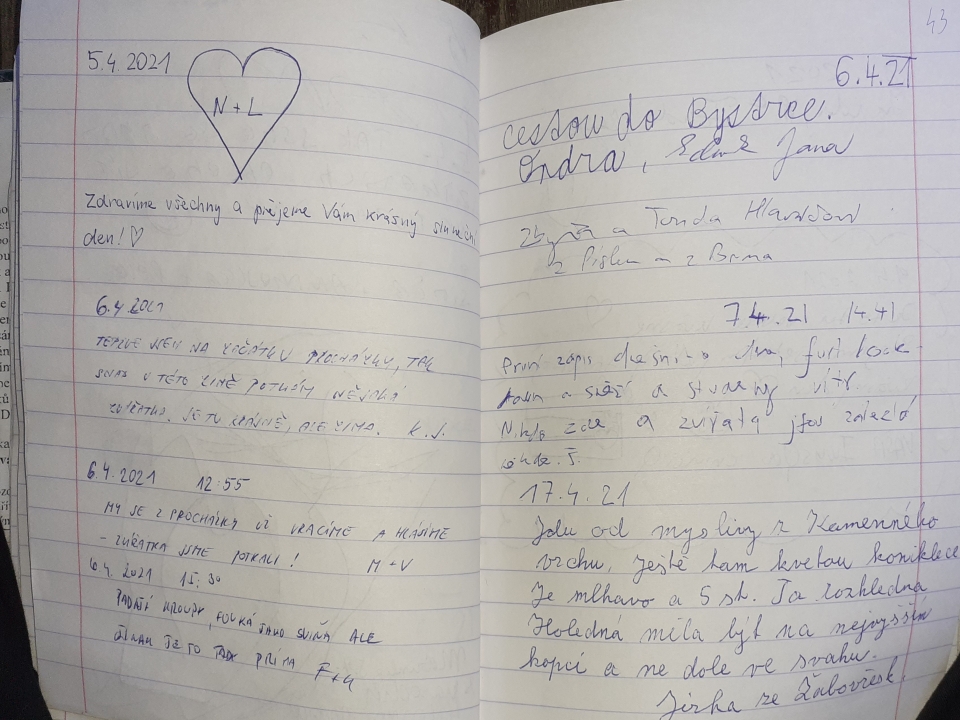 5.4.2021
N + L
Zdravíme všechny a přejeme Vám krásný slunečn
den! ♡
6.4.2021
TEPRVE JSEM NA ZAČÁTKU PROCHÁZKY, TAK
SNAD V TÉTO ZIMĚ POTKÁM NĚJAKÁ
ZVÍŘÁTKA. JE TU KRÁSNĚ, ALE ZIMA. K. J.
6.4.2021 12:55
MY SE Z PROCHÁZKY UŽ VRACÍME A HLÁSÍME
- ZVÍŘÁTKA JSME POTKALI! M + V
6.4. 2021 15:30
PADAJÍ KROUPY, FOUKÁ JAKO SVIŇA ALE
JINAK JE TO TADY PRIMA
43
6.4.21
cestou do Bystrce.
Ondra, Jana
a Tonda
z Písku a z Brna
7.4.21 14.41
První zápis dnešního dne, furt fouk
a sněží a vítr
Nikde a zvířata jsou zalezlá
17.4.21
Jdu od myslivny z Kamenného
vrchu, ještě tam kvetou koniklece
Je mlhavo a 5 st. Ta rozhledna
Holedná měla být na nejvyšším
kopci a ne dole ve svahu.
Jirka ze Žabovřesk.